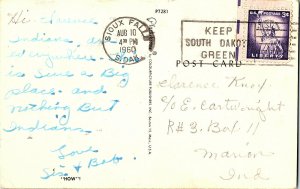 97281
SIOUX FALLS
AUG 10
4 PM
1960
S.DAK.
KEEP
SOUTH DAKOTA
GREEN
U.S. POSTAGE
3¢
LIBERTY
POST CARD
Hi Clarence
Indians
is Sure a Big
place and
nothing But
Indians
Love
Sis & Bob
"HOW"!
Clarence Knoy
C/O E. Cartwright
R #3. Bot 11
Marion
Ind